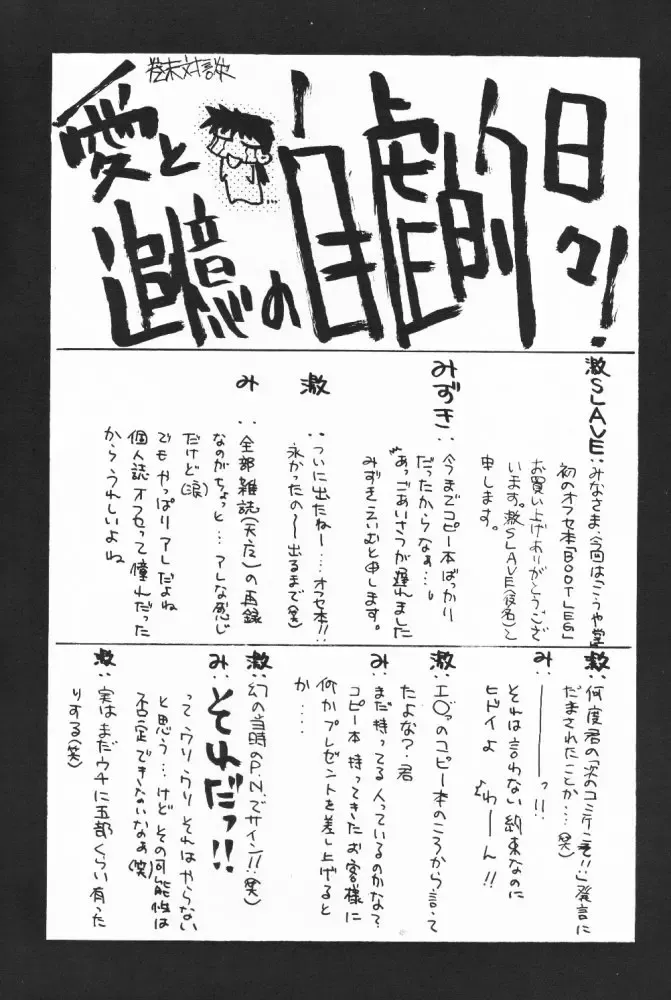 巻末対談
愛と
追憶の
自虐的
日々!
激SLAVE:みなさま、今回はこうや堂
初のオフセ本「BOOTLEG」
お買い上げありがとうござ
います。激SLAVE(仮名)と
申します。
みずき:今までコピー本ばっかり
だったからなぁ…。
あっごあいさつが遅れました
みずきえいむと申します。
激:ついに出たねー…オフセ本!!
永かったの〜出るまで(笑)
み:全部雑誌(天広)の再録
なのがちょっと…アレな感じ
だけど(涙)
でもやっぱりアレだよね
個人誌オフセって憧れだった
からうれしいよね
激:何度君の「次のコミケこそ!!」発言に
だまされたことか…(笑)
み:―――っ!!
それは言わない約束なのに
ヒドイよ わーん!!
激:エ○っのコピー本のころから言って
たよな?君
み:まだ持ってる人っているのかな?
コピー本持ってきたお客様に
何かプレゼントを差し上げると
か…
激:幻の当時のP.Nでサイン!!(笑)
み:それだっ!!
ってウソウソそれはやらない
と思う…けどその可能性は
否定できないなぁ(笑)
激:実はまだウチに五部くらい有った
りする(笑)